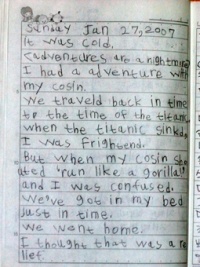 Sunday Jan 27, 2007
It was cold.
<adventures are a nightmare
I had a adventure with
my cosin.
We traveld back in time
to the time of the titanic
when the titanic sinkd,
I was frightend.
But when my cosin sho
uted 'run like a gorilla!'
and I was confused.
We've got in my bed
just in time.
We went home.
I thought that was a re
lief.